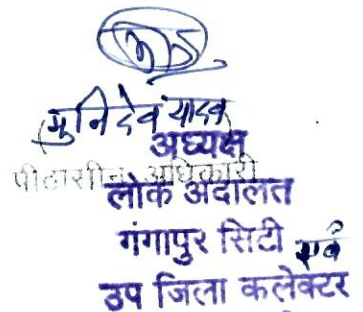 (मुनिदेव यादव
अध्यक्ष
पीठासीन अधिकारी
लोक अदालत
गंगापुर सिटी एवं
उप जिला कलेक्टर